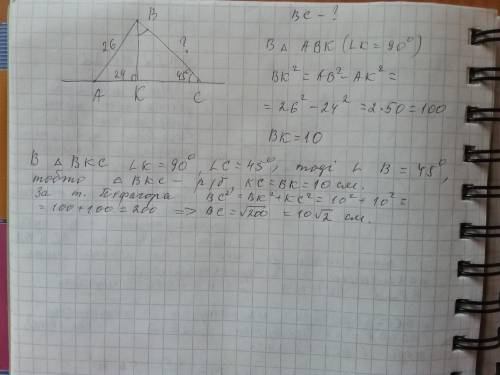 B
BC - ?
26
?
24
45°
A
K
C
В △ ABK (∠K = 90°)
BK² = AB² - AK² =
= 26² - 24² = 2·50 = 100
BK = 10
В △ BKC ∠K = 90°, ∠C = 45°, тоді ∠ B = 45°,
тобто △ BKC - р/б KC = BK = 10 см.
За т. Піфагора BC² = BK² + KC² = 10² + 10² =
= 100 + 100 = 200 => BC = √200 = 10√2 см.